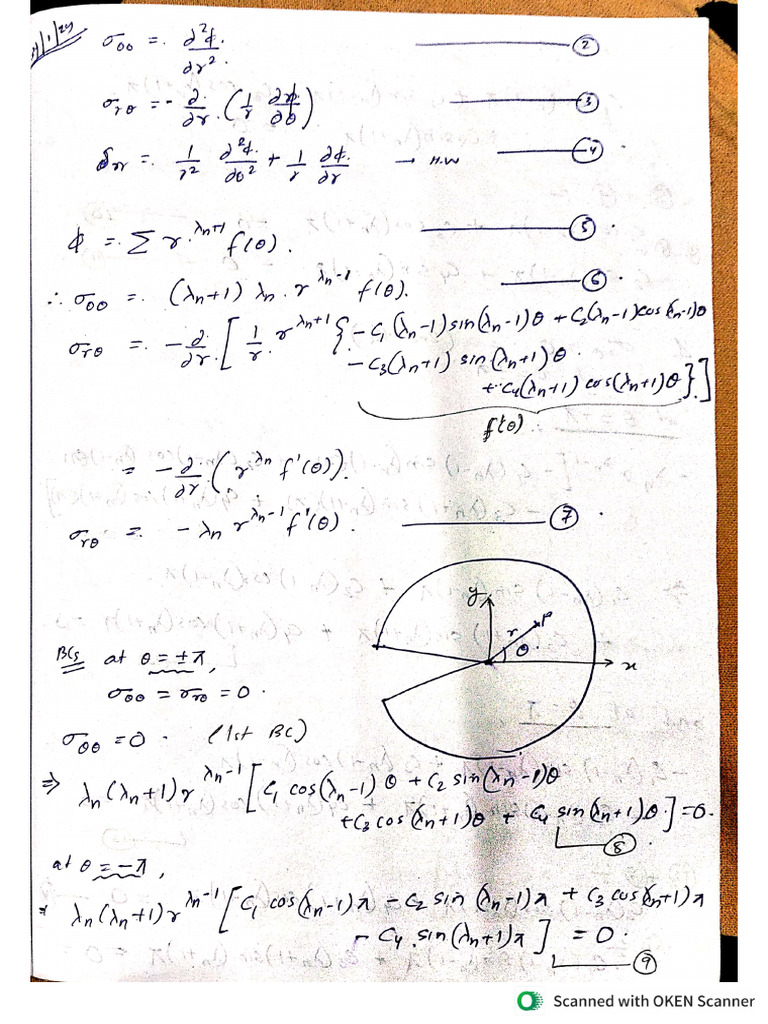 /1/24
σ_θθ = ∂²ϕ/∂r² ——— ②
σ_rθ = - ∂/∂r (1/r ∂ϕ/∂θ) ——— ③
σ_rr = 1/r² ∂²ϕ/∂θ² + 1/r ∂ϕ/∂r → H.W ——— ④
ϕ = Σ r^(λn+1) f(θ). ——— ⑤
∴ σ_θθ = (λn+1) λn r^(λn-1) f(θ). ——— ⑥
σ_rθ = -∂/∂r [ 1/r r^(λn+1) { -C₁(λn-1) sin(λn-1)θ + C₂(λn-1) cos(λn-1)θ
-C₃(λn+1) sin(λn+1)θ
+ C₄(λn+1) cos(λn+1)θ } ]
f'(θ)
= -∂/∂r ( r^λn f'(θ) ).
σ_rθ = -λn r^(λn-1) f'(θ). ——— ⑦
y
P
r
θ
x
BCs at θ = ±π,
σ_θθ = σ_rθ = 0.
σ_θθ = 0. (1st BC)
⇒ λn(λn+1) r^(λn-1) [ C₁ cos(λn-1)θ + C₂ sin(λn-1)θ
+ C₃ cos(λn+1)θ + C₄ sin(λn+1)θ ] = 0.
⑧
at θ = -π,
⇒ λn(λn+1) r^(λn-1) [ C₁ cos(λn-1)π - C₂ sin(λn-1)π + C₃ cos(λn+1)π
- C₄ sin(λn+1)π ] = 0.
⑨
Scanned with OKEN Scanner